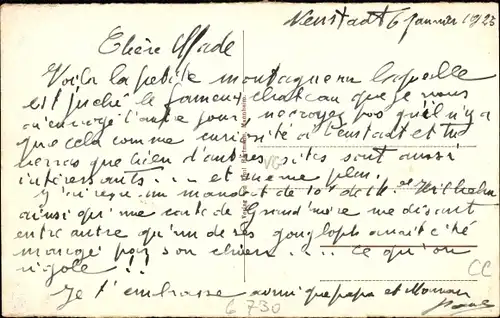 Neustadt 6 janvier 1923
Chère Made
Voila la petite montagne sur laquelle
est juché le fameux chateau que je vous
ai envoyé l'autre jour, ne croyez pas qu'il n'y a
que cela comme curiosité à Neustadt et tu
verras que bien d'autres sites sont aussi
intéressants... et même plus.
J'ai reçu un mandat de 10 de M. et Wilhelm
ainsi qu'une carte de Grand'mère me disant
entre autre qu'un de ses gouglophs avait été
mangé par son chien .... ce qu'on
rigole !!
Je t'embrasse ainsi que papa et Maman
6730
CC